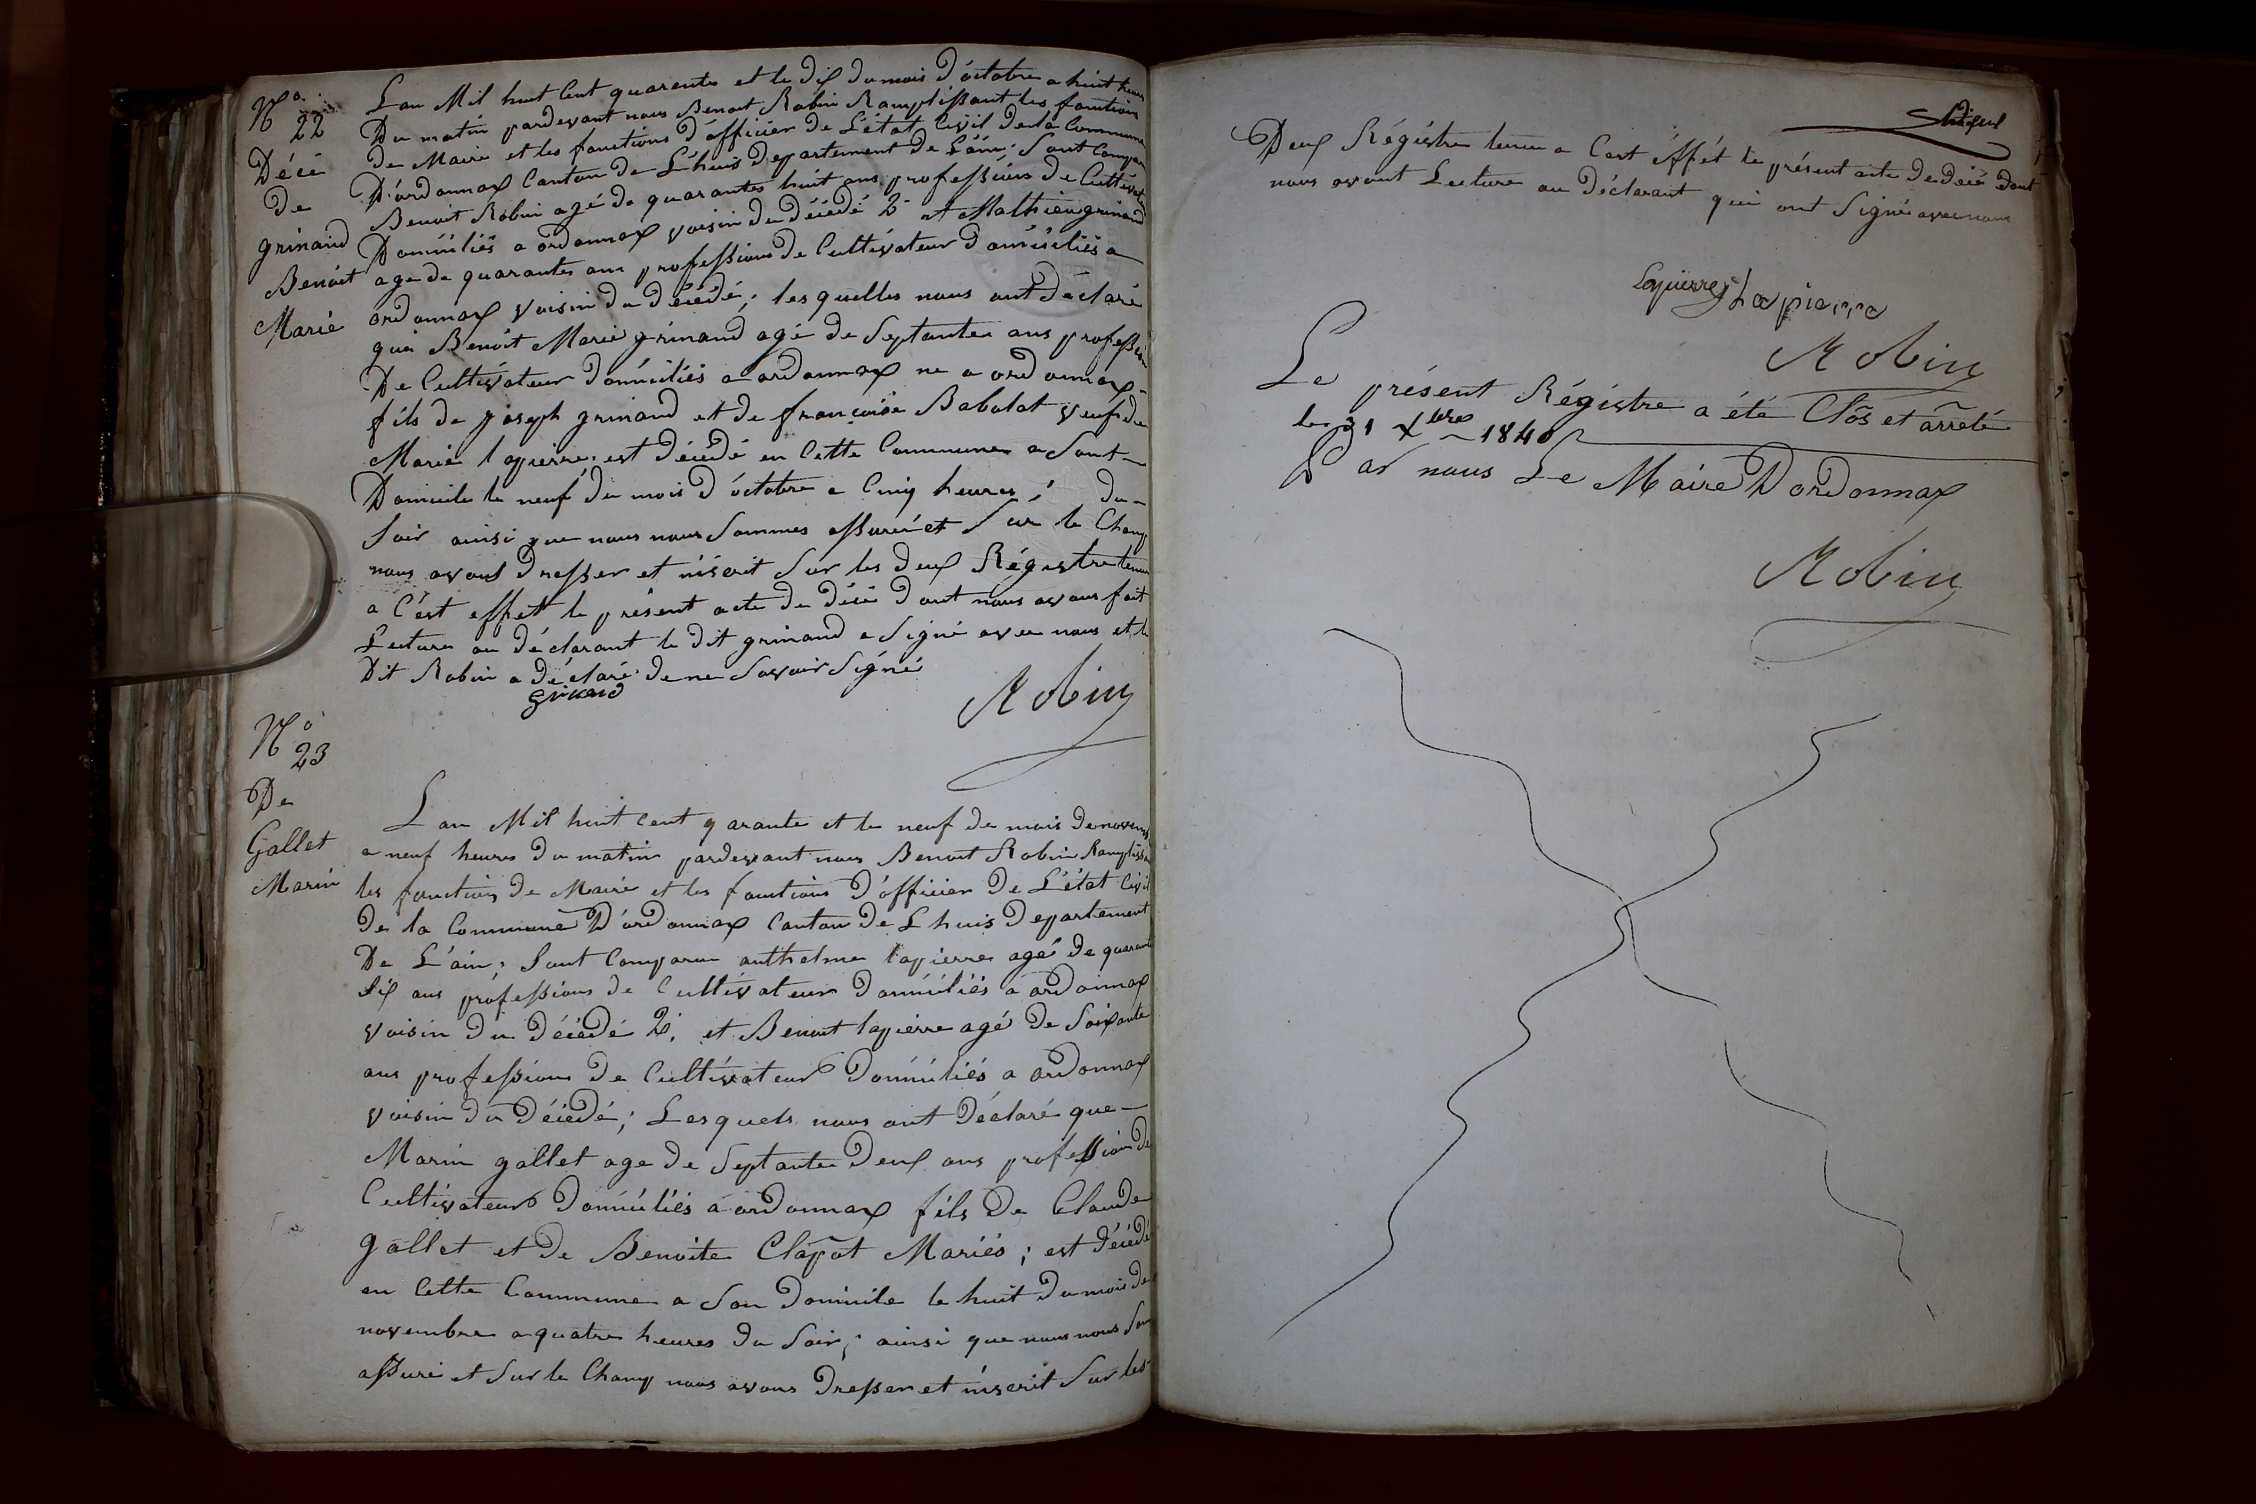 N° 22
Décé
De
grinand
Benoit
Marie
L'an Mil huit Cent quarente et le dix du mois d'octobre a huit heures
Du matin pardevant nous Benoit Robin Ramplissant les fonctions
De Maire et les fonctions d'officier De L'état Civil De la Commune
D'ordonnax Canton De Lhuis Departement De L'ain; Sont Comparu
Benoit Robin agé de quarantes huit ans profession De Cultivateur
Domiciliés a ordonnax voisin du décédé 2° et Mathieu grinand
age de quarantes ans professions De Cultivateur Domiciliés a
ordonnax voisin du décédé; les quelles nous ont déclaré
que Benoit Marie grinand agé de Septantes ans profession
De Cultivateur Domiciliés a ordonnax ne a ordonnax
fils de joseph grinand et de françoise Babolat veuf de
Marie lapierre est décédé en Cette Commune a Sont
Domicile le neuf du mois d'octobre a Cinq heures du
Soir ainsi que nous nous Sommes assuré et Sur le Champ
nous avons Dresser et inscrit Sur les Deux Régistre tenue
a C'est effett le présent acte de Décé Dont nous avons fait
Lecture au déclarant le Dit grinand a Signé avec nous et le
Dit Robin a déclaré de ne Savoir Signé
grinand
Robin
N° 23
De
Gallet
Marin
L'an Mil huit Cent qarante et le neuf de mois de novembre
a neuf heures Du matin pardevant nous Benoit Robin Ramplissa
les fonctions De Maire et les fonctions D'officier De L'état Civil
De la Commune D'ordonnax Canton De Lhuis Departement
De L'ain; Sont Comparu anthelme lapierre agé de quarante
Six ans professions de Cultivateur Domiciliés a ordonnax
voisin Du Décédé 2°. et Benoit lapierre agé De Soixante
ans professions De Cultivateur Domiciliés a ordonnax
voisin du Décédé; Lesquels nous ont Déclaré que
Marin gallet age de Septantes Deux ans profession de
Cultivateur Domiciliés a ordonnax fils De Claude
gallet et de Benoite Clapot Mariés; est décédé
en Cette Commune a Son Domicile le huit Du mois de
novembre a quatre heures Du Soir; ainsi que nous nous Som
assuré et Sur le Champ nous avons Dresser et inscrit Sur les
Deux Régistre tenue a Cest éffét le présent acte de décé dont
nous avont Lecture au Déclarant qui ont Signé avec nous
Lapierre Lapierre
Robin
Le présent Régistre a été Clos et arrêté
le 31 Xbre 1840
Par nous Le Maire D'ordonnax
Robin